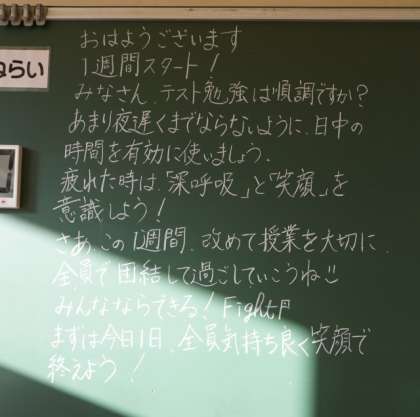 ねらい
おはようございます
1週間スタート!
みなさん、テスト勉強は順調ですか?
あまり夜遅くまでならないように、日中の
時間を有効に使いましょう。
疲れた時は、「深呼吸」と「笑顔」を
意識しよう!
さあ、この1週間、改めて授業を大切に
全員で団結して過ごしていこうね!!
みんなならできる! Fight!!
まずは今日1日、全員気持ち良く笑顔で
終えよう!